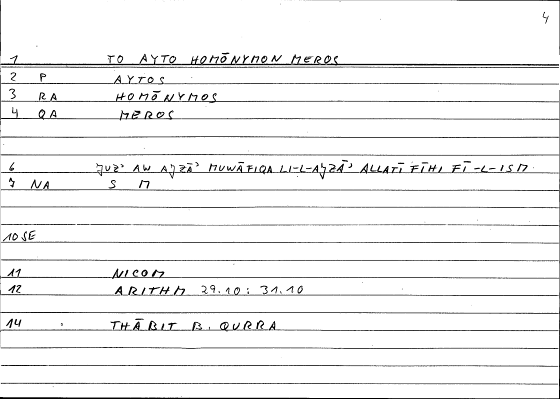 4
1 TO AYTO HOMŌNYMON MEROS
2 P AYTOS
3 RA HOMŌNYMOS
4 QA MEROS
6 ǦUZʾ AW AǦZĀʾ MUWĀFIQA LI-L-AǦZĀʾ ALLATĪ FĪHI FĪ-L-ISM
7 NA S M
10 SE
11 NICOM
12 ARITHM 29.10 : 31.10
14 THĀBIT B. QURRA